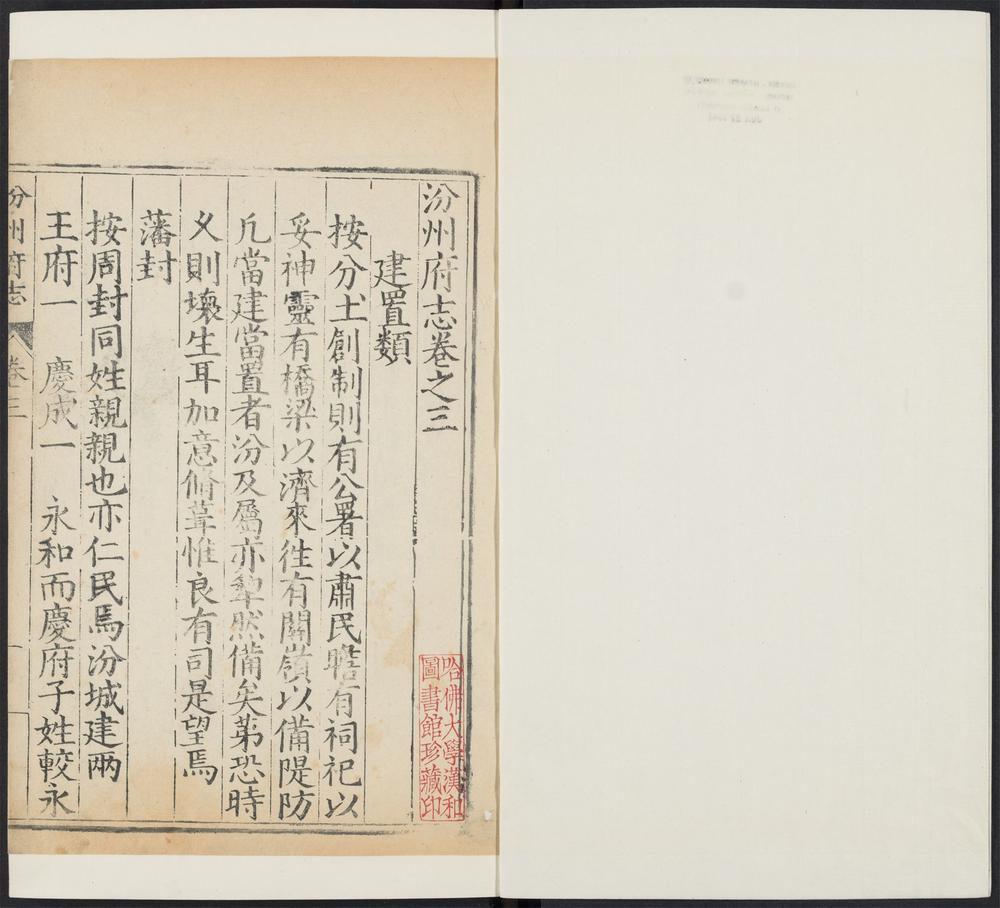 汾州府志卷之三
建置類
按分土創制則有公署以肅民瞻有祠祀以
妥神靈有橋梁以濟來徃有關嶺以備隄防
凢當建當置者汾及屬亦犂然備矣苐恐時
乆則壞生耳加意脩葺惟良有司是望焉
藩封
按周封同姓親親也亦仁民焉汾城建兩
王府一 慶成一 永和而慶府子姓較永
汾州府志 卷三 一
哈佛大學漢和
圖書館珍藏印